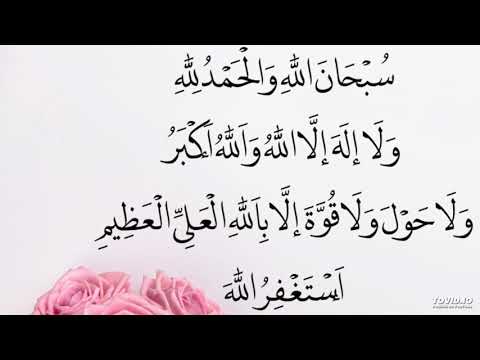 سُبْحَانَ اللّٰهِ وَالْحَمْدُ لِلّٰهِ
وَلَا إِلَهَ إِلَّا اللّٰهُ وَاَللّٰهُ اَكْبَرُ
وَلَا حَوْلَ وَلَا قُوَّةَ إِلَّا بِاَللّٰهِ الْعَلِيِّ الْعَظِيمِ
اَسْتَغْفِرُ اللّٰهَ
TOVID.IO